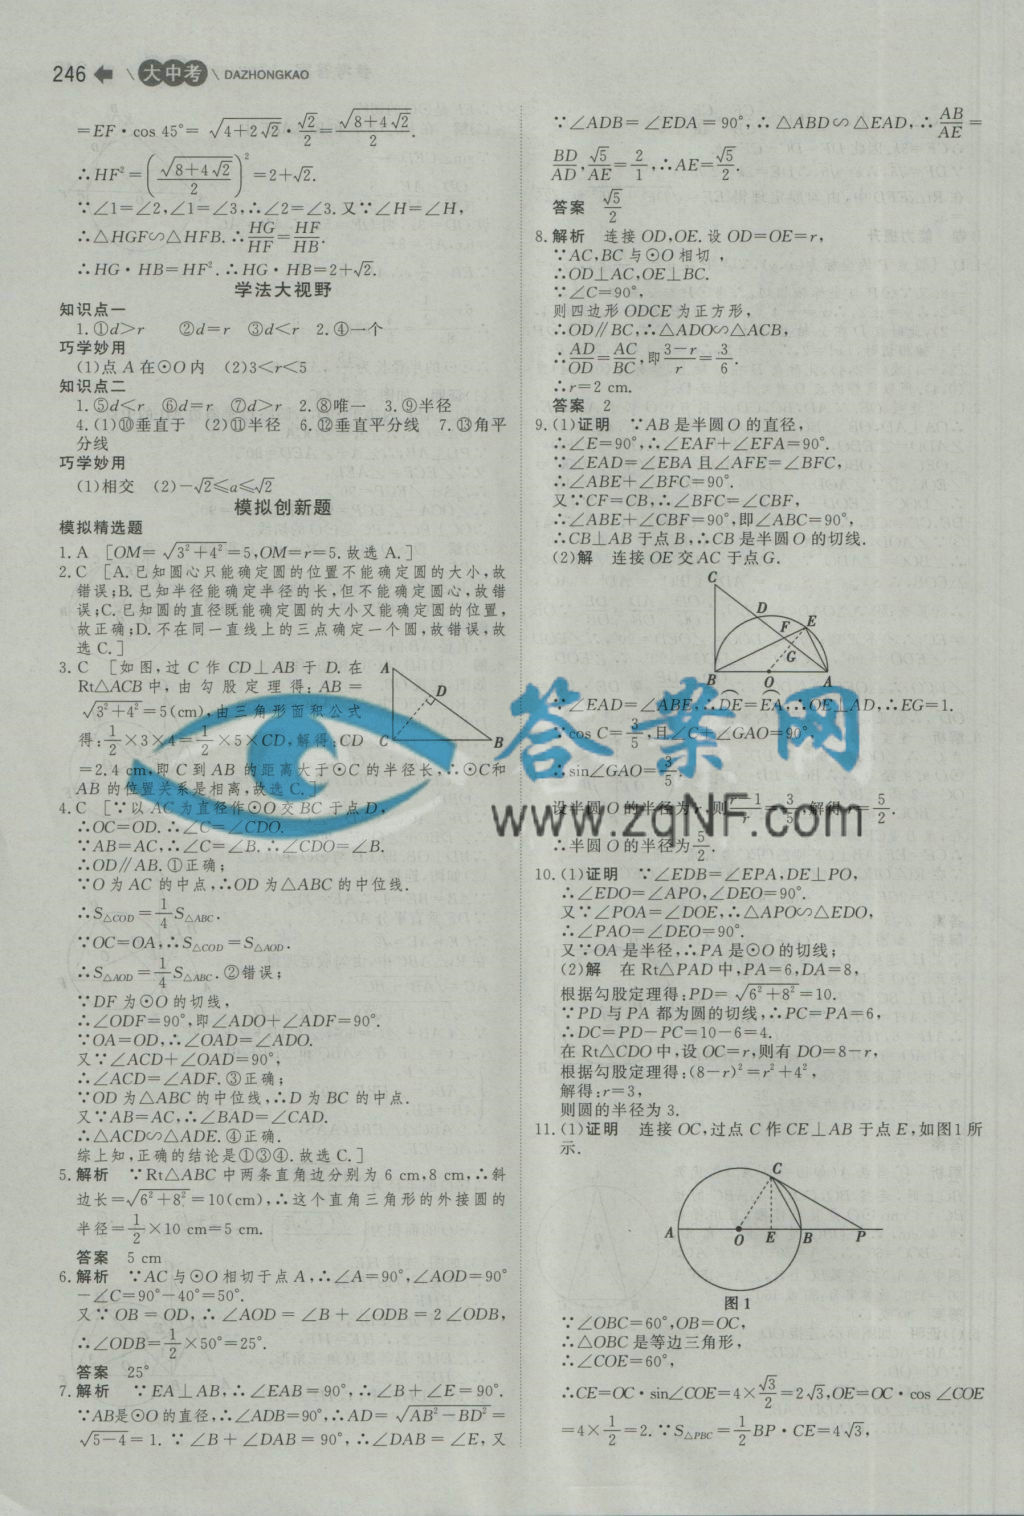 246 大中考 DAZHONGKAO
=EF·cos 45°=√(4+2√2)·√2/2=√(8+4√2)/2.
∴HF²=(√(8+4√2)/2)²=2+√2.
∵∠1=∠2,∠1=∠3,∴∠2=∠3.又∵∠H=∠H,
∴△HGF∽△HFB.∴HG/HF=HF/HB.
∴HG·HB=HF².∴HG·HB=2+√2.
学法大视野
知识点一
1.①d>r ②d=r ③d<r 2.④一个
巧学妙用
(1)点A在⊙O内 (2)3<r<5
知识点二
1.⑤d<r ⑥d=r ⑦d>r 2.⑧唯一 3.⑨半径
4.(1)⑩垂直于 (2)⑪半径 6.⑫垂直平分线 7.⑬角平
分线
巧学妙用
(1)相交 (2)-√2≤a≤√2
模拟创新题
模拟精选题
1.A [OM=√(3²+4²)=5,OM=r=5.故选A.]
2.C [A.已知圆心只能确定圆的位置不能确定圆的大小,故
错误;B.已知半径能确定半径的长,但不能确定圆心,故错
误;C.已知圆的直径既能确定圆的大小又能确定圆的位置,
故正确;D.不在同一直线上的三点确定一个圆,故错误,故
选C.]
3.C [如图,过C作CD⊥AB于D.在
Rt△ACB中,由勾股定理得:AB=
√(3²+4²)=5(cm),由三角形面积公式
得:1/2×3×4=1/2×5×CD,解得:CD
=2.4 cm,即C到AB的距离大于⊙C的半径长,∴⊙C和
AB的位置关系是相离,故选C.]
A
D
C
B
4.C [∵以AC为直径作⊙O交BC于点D,
∴OC=OD.∴∠C=∠CDO.
∵AB=AC,∴∠C=∠B.∴∠CDO=∠B.
∴OD∥AB.①正确;
∵O为AC的中点,∴OD为△ABC的中位线.
∴S△COD=1/4S△ABC.
∵OC=OA,∴S△COD=S△AOD.
∴S△AOD=1/4S△ABC.②错误;
∵DF为⊙O的切线,
∴∠ODF=90°,即∠ADO+∠ADF=90°.
∵OA=OD,∴∠OAD=∠ADO.
又∵∠ACD+∠OAD=90°,
∴∠ACD=∠ADF.③正确;
∵OD为△ABC的中位线,∴D为BC的中点.
又∵AB=AC,∴∠BAD=∠CAD.
∴△ACD∽△ADE.④正确.
综上知,正确的结论是①③④.故选C.]
5.解析 ∵Rt△ABC中两条直角边分别为6 cm,8 cm,∴斜
边长=√(6²+8²)=10(cm),∴这个直角三角形的外接圆的
半径=1/2×10 cm=5 cm.
答案 5 cm
6.解析 ∵AC与⊙O相切于点A,∴∠A=90°,∠AOD=90°
-∠C=90°-40°=50°.
又∵OB=OD,∴∠AOD=∠B+∠ODB=2∠ODB,
∴∠ODB=1/2×50°=25°.
答案 25°
7.解析 ∵EA⊥AB,∴∠EAB=90°,∴∠B+∠E=90°.
∵AB是⊙O的直径,∴∠ADB=90°,∴AD=√(AB²-BD²)=
√(5-4)=1.∵∠B+∠DAB=90°,∴∠DAB=∠E,又
∵∠ADB=∠EDA=90°,∴△ABD∽△EAD,∴AB/AE=
BD/AD,√5/AE=2/1,∴AE=√5/2.
答案 √5/2
8.解析 连接OD,OE.设OD=OE=r,
∵AC,BC与⊙O相切,
∴OD⊥AC,OE⊥BC.
∵∠C=90°,
则四边形ODCE为正方形,
∴OD∥BC,∴△ADO∽△ACB,
∴AD/OD=AC/BC,即(3-r)/r=3/6.
∴r=2 cm.
答案 2
9.(1)证明 ∵AB是半圆O的直径,
∴∠E=90°,∴∠EAF+∠EFA=90°.
∵∠EAD=∠EBA且∠AFE=∠BFC,
∴∠ABE+∠BFC=90°.
又∵CF=CB,∴∠BFC=∠CBF,
∴∠ABE+∠CBF=90°,即∠ABC=90°,
∴CB⊥AB于点B,∴CB是半圆O的切线.
(2)解 连接OE交AC于点G.
C
D
F
E
G
B
O
A
∵∠EAD=∠ABE,∴DE=EA,∴OE⊥AD,∴EG=1.
∵cos C=3/5,且∠C+∠GAO=90°,
∴sin∠GAO=3/5.
设半圆O的半径为r,则(r-1)/r=3/5,解得r=5/2.
∴半圆O的半径为5/2.
10.(1)证明 ∵∠EDB=∠EPA,DE⊥PO,
∴∠EDO=∠APO,∠DEO=90°.
又∵∠POA=∠DOE,∴△APO∽△EDO,
∴∠PAO=∠DEO=90°.
又∵OA是半径,∴PA是⊙O的切线;
(2)解 在Rt△PAD中,PA=6,DA=8,
根据勾股定理得:PD=√(6²+8²)=10.
∵PD与PA都为圆的切线,∴PC=PA=6,
∴DC=PD-PC=10-6=4.
在Rt△CDO中,设OC=r,则有DO=8-r,
根据勾股定理得:(8-r)²=r²+4²,
解得:r=3,
则圆的半径为3.
11.(1)证明 连接OC,过点C作CE⊥AB于点E,如图1所
示.
C
A
O
E
B
P
图1
∵∠OBC=60°,OB=OC,
∴△OBC是等边三角形,
∴∠COE=60°,
∴CE=OC·sin∠COE=4×√3/2=2√3,OE=OC·cos∠COE
=4×1/2=2.∵S△PBC=1/2BP·CE=4√3,
答案网
www.zqNF.com